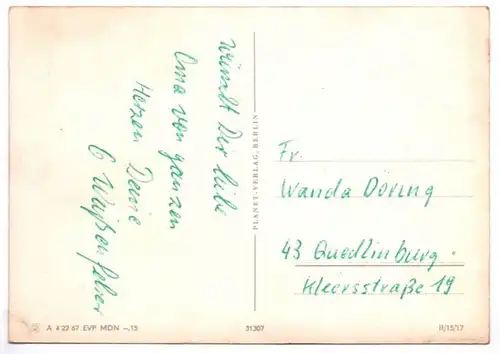 wünscht Dir liebe
Oma von ganzen
Herzen Deine
6 Weißenfelser
PLANET-VERLAG, BERLIN
Fr.
Wanda Döring
43 Quedlinburg.
Kleersstraße 19
A 4 22 67 EVP MDN –,15
31307
II/15/17